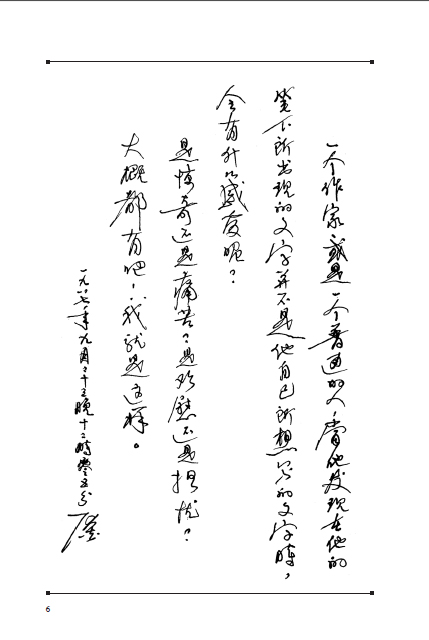 一个作家或是一个普通的人，當他发现在他的
笔下所出现的文字并不是他自己所想写的文字時，
会有什么感受呢？
是惊奇还是痛苦？是欣慰还是担忧？
大概都有吧！我就是这样。
一九八七年九月二十三晚十二時零五分
6